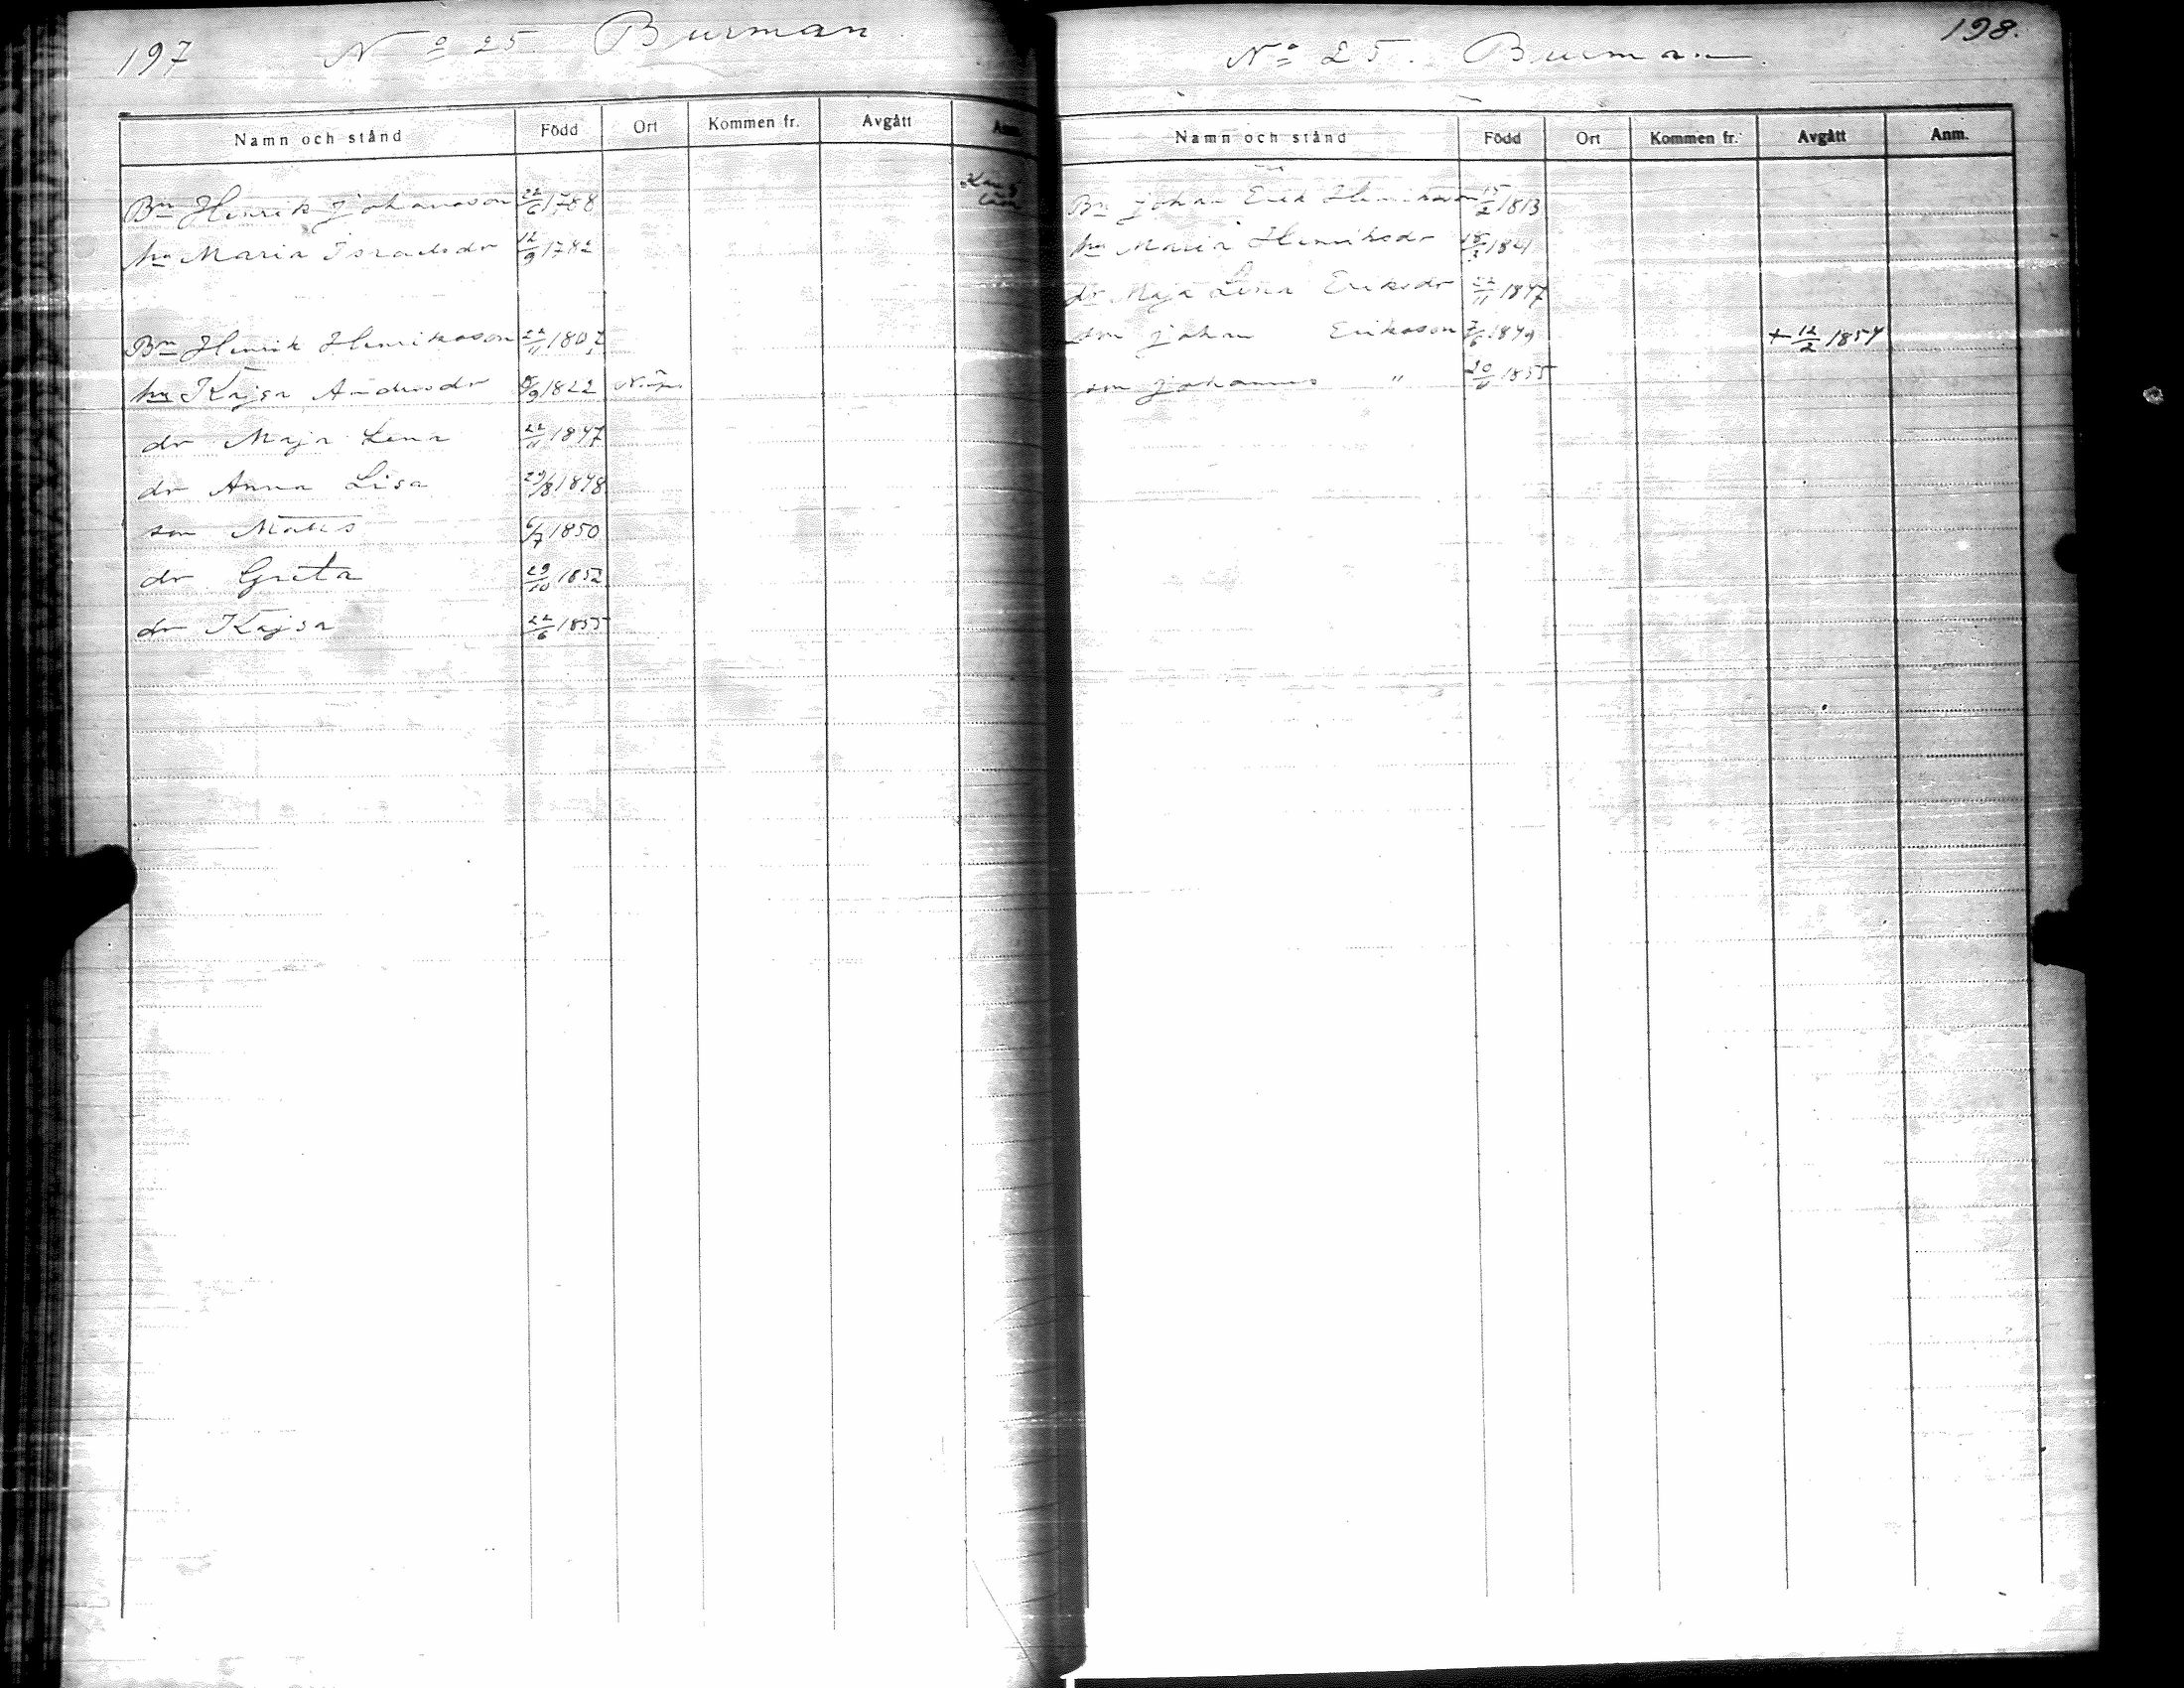 197 No 25. Burman.
Namn och stånd Född Ort Kommen fr. Avgått Anm.
Bn Henrik Johansson 22/6 1788
hu Maria Israelsdr 12/9 1782
Bn Henrik Henriksson 22/11 1807
hu Kajsa Andersdr /9 1822
dr Maja Lena 22/11 1847
dr Anna Lisa 29/8 1848
son Matts 6/7 1850
dr Greta 29/10 1852
dr Kajsa 22/6 1855
No 25. Burman. 198.
Namn och stånd Född Ort Kommen fr. Avgått Anm.
Bn Johan Erik Henriksson 15/2 1813
hu Maria Henriksdr 1821
dr Maja Lena Eriksdr 22/11 1847
son Johan Eriksson 7/6 1849 + 12/2 1854
son Johannes " 20/6 1855